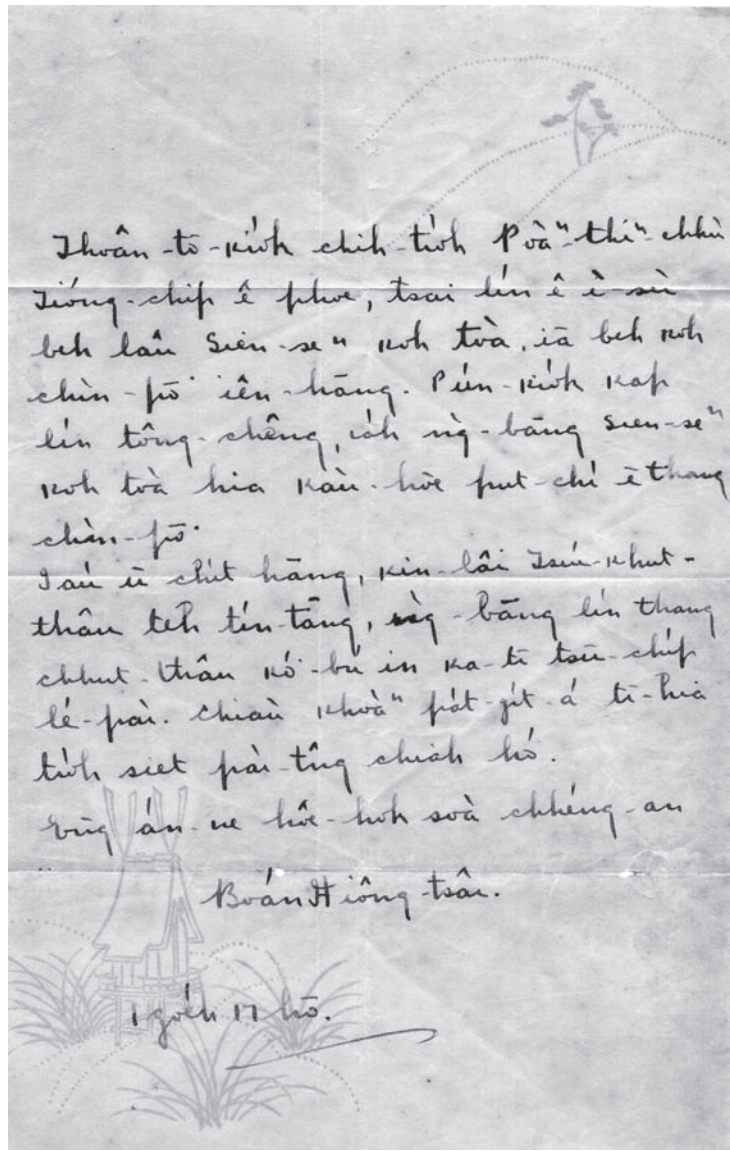 Thoân-tō-kio̍k chih-tio̍h Pòaⁿ-thiⁿ-chhù
Tióng-chip ê phoe, tsai lín ê ì-sù
beh lâu Sien-seⁿ koh tòa, iā beh koh
chìn-pō͘ iên-hāng. Pún-kio̍k kap
lín tông-chêng, iáh ǹg-bāng Sien-seⁿ
koh tòa hia kàu-hōe put-chí ē thang
chìn-pō͘
Iáu ū chi̍t hāng, kin-lâi Tsúi-khut-
thâu teh tín-tāng, ǹg-bāng lín thang
chhut-thâu kó͘-bú in ka-tī tsū-chi̍p
lé-pài. Chiàu khòaⁿ pa̍t-ji̍t á tī-hia
tio̍h siet pài-tn̂g chiah hó.
Ēng án-ne hôe-hok soà chhéng-an
Boán Hiông-tsâi.
1 goe̍h 17 hō.